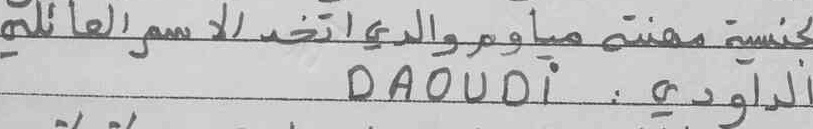 لجنسية مهنته مياوم والدي اتخذ الاسم العائلي
الداودي : DAOUDI